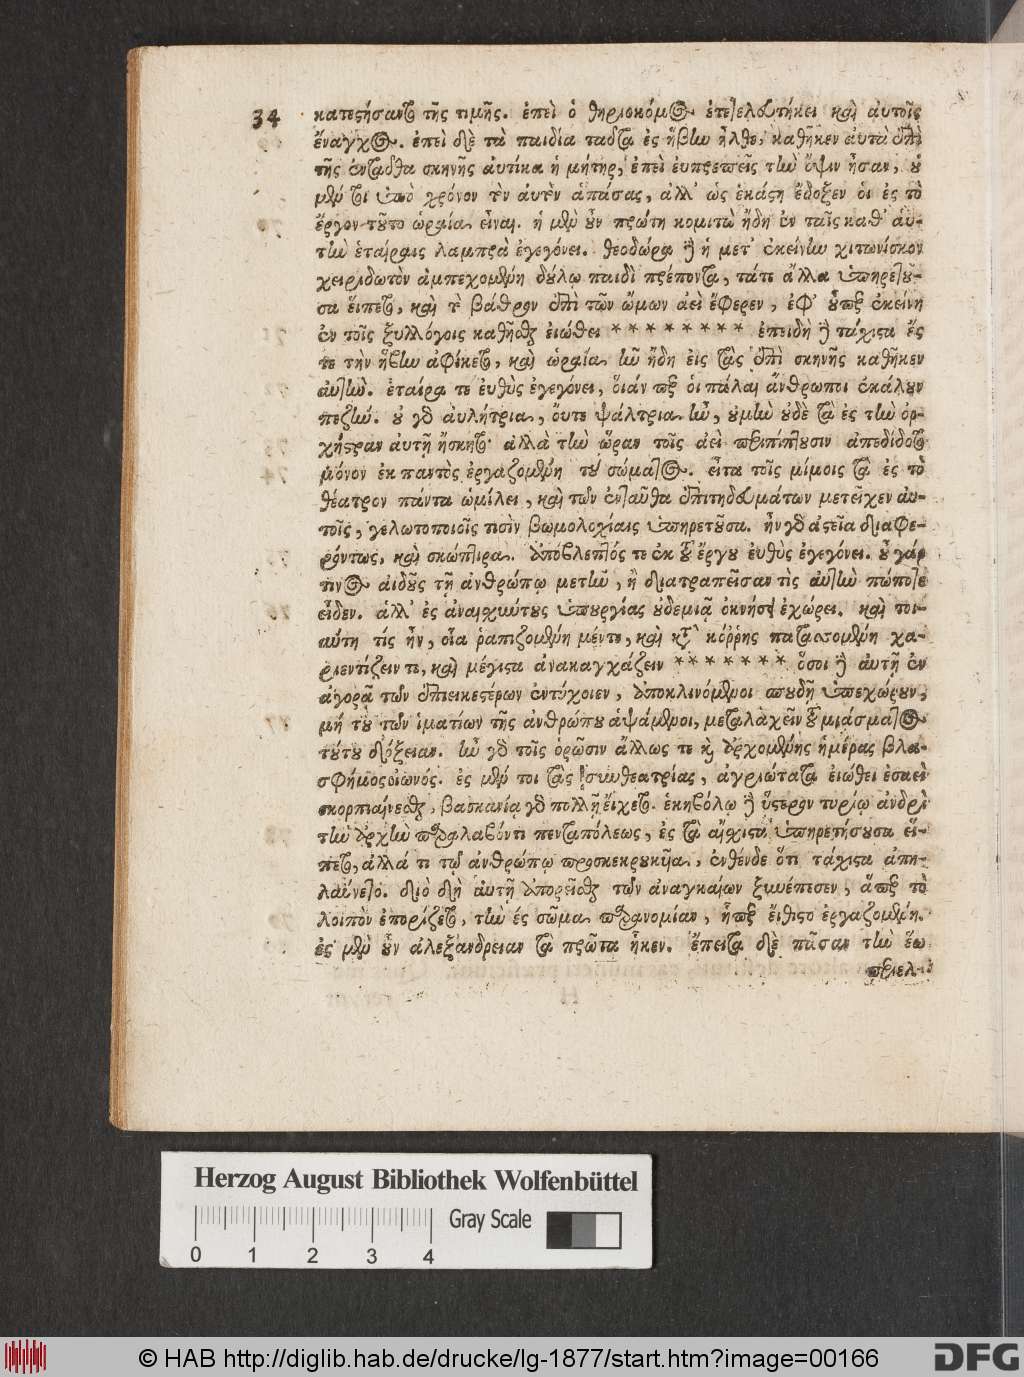 34 κατεστήσαντο τῆς τιμῆς. ἐπεὶ ὁ θηριοκόμος ἐτετελευτήκει καὶ αὐτοῖς
ἔναγχος. ἐπεὶ δὲ τὰ παιδία ταῦτα ἐς ἥβην ἦλθε, καθῆκεν αὐτὰ ἐπὶ
τῆς ἐνταῦθα σκηνῆς αὐτίκα ἡ μήτηρ, ἐπεὶ εὐπρεπεῖς τὴν ὄψιν ἦσαν, οὐ
μέν τοι ὑπὸ χρόνον τὸν αὐτὸν ἁπάσας, ἀλλ' ὡς ἑκάστη ἔδοξέν οἱ ἐς τὸ
ἔργον τοῦτο ὡραία εἶναι. ἡ μὲν οὖν πρώτη κομιτὼ ἤδη ἐν ταῖς καθ' αὑ-
τὴν ἑταίραις λαμπρὰ ἐγεγόνει. θεοδώρα δὲ ἡ μετ' ἐκείνην χιτωνίσκον
χειριδωτὸν ἀμπεχομένη δούλῳ παιδὶ πρέποντα, τάτε ἄλλα ὑπηρετοῦ-
σα εἵπετο, καὶ τὸ βάθρον ἐπὶ τῶν ὤμων ἀεὶ ἔφερεν, ἐφ' οὗπερ ἐκείνη
ἐν τοῖς ξυλλόγοις καθῆσθαι εἰώθει * * * * * * * * ἐπειδὴ δὲ τάχιστα ἔς
τε τὴν ἥβην ἀφίκετο, καὶ ὡραία ἦν ἤδη εἰς τὰς ἐπὶ σκηνῆς καθῆκεν
αὐτήν. ἑταίρα τε εὐθὺς ἐγεγόνει, οἵάν περ οἱ πάλαι ἄνθρωποι ἐκάλουν
πεζήν. οὐ γὰρ αὐλήτρια, οὔτε ψάλτρια ἦν, οὐμὴν οὐδὲ τὰ ἐς τὴν ὀρ-
χήστραν αὐτῇ ἤσκητο· ἀλλὰ τὴν ὥραν τοῖς ἀεὶ περιπίπτουσιν ἀπεδίδοτο
μόνον ἐκ παντὸς ἐργαζομένη τοῦ σώματος. εἶτα τοῖς μίμοις τὰ ἐς τὸ
θέατρον πάντα ὡμίλει, καὶ τῶν ἐνταῦθα ἐπιτηδευμάτων μετεῖχεν αὐ-
τοῖς, γελωτοποιοῖς τισὶν βωμολοχίαις ὑπηρετοῦσα. ἦν γὰρ ἀστεῖα διαφε-
ρόντως, καὶ σκώπτειρα. ἀπόβλεπτός τε ἐκ τοῦ ἔργου εὐθὺς ἐγεγόνει. οὐ γάρ
τινος αἰδοῦς τῇ ἀνθρώπῳ μετῆν, ἢ διατραπεῖσαν τὶς αὐτὴν πώποτε
εἶδεν. ἀλλ' ἐς ἀναισχύντους ὑπουργίας οὐδεμιᾷ ὀκνήσει ἐχώρει. καὶ τοι-
αύτη τίς ἦν, οἷα ῥαπιζομένη μέντοι, καὶ κατὰ κόρρης πατασσομένη χα-
ριεντίζειν τι, καὶ μέγιστα ἀνακαγχάζειν * * * * * * * ὅσοι δὲ αὐτῇ ἐν
ἀγορᾷ τῶν ἐπιεικεστέρων ἐντύχοιεν, ἀποκλινόμενοι σπουδῇ ὑπεχώρουν,
μή του τῶν ἱματίων τῆς ἀνθρώπου ἁψάμενοι, μεταλαχεῖν τοῦ μιάσματος
τούτου δόξειαν. ἦν γὰρ τοῖς ὁρῶσιν ἄλλως τε καὶ ἀρχομένης ἡμέρας βλα-
σφήμος οἰωνός. ἐς μέν τοι τὰς συνθεατρίας, ἀγριώτατα εἰώθει ἐσαεὶ
σκορπιαίνεσθαι, βασκανίᾳ γὰρ πολλῇ εἴχετο. ἑκηβόλῳ δὲ ὕστερον τυρίῳ ἀνδρὶ
τὴν ἀρχὴν παραλαβόντι πενταπόλεως, ἐς τὰ αἴσχιστα ὑπηρετήσουσα εἵ-
πετο, ἀλλά τι τῷ ἀνθρώπῳ προσκεκρουκυῖα, ἐνθένδε ὅτι τάχιστα ἀπη-
λαύνετο. διὸ δὴ αὐτῇ ἀπορεῖσθαι τῶν ἀναγκαίων ξυνέπεσεν, ἅπερ τὸ
λοιπὸν ἐπορίζετο, τὴν ἐς σῶμα παρανομίαν, ἧπερ εἴθιστο ἐργαζομένη.
ἐς μὲν οὖν ἀλεξάνδρειαν τὰ πρῶτα ἧκεν. ἔπειτα δὲ πᾶσαν τὴν ἕω
περιελ-
Herzog August Bibliothek Wolfenbüttel
Gray Scale
0 1 2 3 4
© HAB http://diglib.hab.de/drucke/lg-1877/start.htm?image=00166
DFG